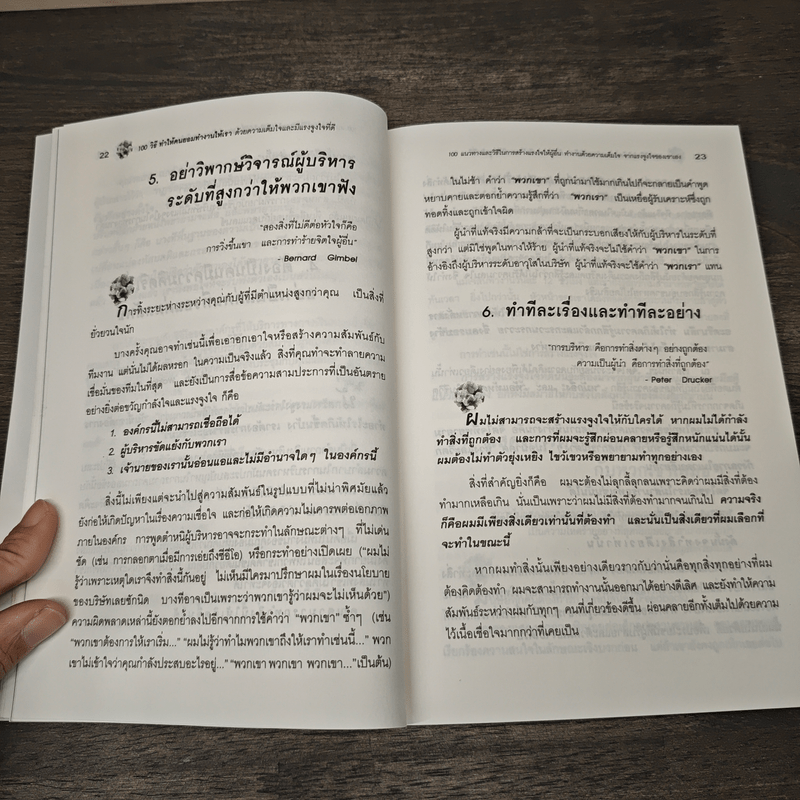 22
100 วิธี ทำให้คนยอมทำงานให้เรา ด้วยความเต็มใจและมีแรงจูงใจที่ดี
5. อย่าวิพากษ์วิจารณ์ผู้บริหาร
ระดับที่สูงกว่าให้พวกเขาฟัง
"สองสิ่งที่ไม่ดีต่อหัวใจก็คือ
การวิ่งขึ้นเขา และการทำร้ายจิตใจผู้อื่น"
- Bernard Gimbel
การทิ้งระยะห่างระหว่างคุณกับผู้ที่มีตำแหน่งสูงกว่าคุณ เป็นสิ่งที่
ยั่วยวนใจนัก
บางครั้งคุณอาจทำเช่นนี้เพื่อเอาอกเอาใจหรือสร้างความสัมพันธ์กับ
ทีมงาน แต่นั่นไม่ได้ผลหรอก ในความเป็นจริงแล้ว สิ่งที่คุณทำจะทำลายความ
เชื่อมั่นของทีมในที่สุด และยังเป็นการสื่อข้อความสามประการที่เป็นอันตราย
อย่างยิ่งต่อขวัญกำลังใจและแรงจูงใจ ก็คือ
1. องค์กรนี้ไม่สามารถเชื่อถือได้
2. ผู้บริหารขัดแย้งกับพวกเรา
3. เจ้านายของเรานั้นอ่อนแอและไม่มีอำนาจใดๆ ในองค์กรนี้
สิ่งนี้ไม่เพียงแต่จะนำไปสู่ความสัมพันธ์ในรูปแบบที่ไม่น่าพิศมัยแล้ว
ยังก่อให้เกิดปัญหาในเรื่องความเชื่อใจ และก่อให้เกิดความไม่เคารพต่อเอกภาพ
ภายในองค์กร การพูดตำหนิผู้บริหารอาจจะกระทำในลักษณะต่างๆ ที่ไม่เด่น
ชัด (เช่น การกลอกตาเมื่อมีการเอ่ยถึงซีอีโอ) หรือกระทำอย่างเปิดเผย ("ผมไม่
รู้ว่าเพราะเหตุใดเราจึงทำสิ่งนี้กันอยู่ ไม่เห็นมีใครมาปรึกษาผมในเรื่องนโยบาย
ของบริษัทเลยซักนิด บางทีอาจเป็นเพราะว่าพวกเขารู้ว่าผมจะไม่เห็นด้วย")
ความผิดพลาดเหล่านี้ยังตอกย้ำลงไปอีกจากการใช้คำว่า "พวกเขา" ซ้ำๆ (เช่น
"พวกเขาต้องการให้เราเริ่ม..." "ผมไม่รู้ว่าทำไมพวกเขาถึงให้เราทำเช่นนี้..." พวก
เขาไม่เข้าใจว่าคุณกำลังประสบอะไรอยู่..." "พวกเขา พวกเขา พวกเขา..."เป็นต้น)
100 แนวทางและวิธีในการสร้างแรงใจให้ผู้อื่น ทำงานด้วยความเต็มใจ จากแรงจูงใจของเขาเอง
23
ในไม่ช้า คำว่า "พวกเขา" ที่ถูกนำมาใช้มากเกินไปก็จะกลายเป็นคำพูด
หยาบคายและตอกย้ำความรู้สึกที่ว่า "พวกเรา" เป็นเหยื่อผู้รับเคราะห์ซึ่งถูก
ทอดทิ้งและถูกเข้าใจผิด
ผู้นำที่แท้จริงมีความกล้าที่จะเป็นกระบอกเสียงให้กับผู้บริหารในระดับที่
สูงกว่า แต่มิใช่พูดในทางให้ร้าย ผู้นำที่แท้จริงจะไม่ใช้คำว่า "พวกเขา" ในการ
อ้างอิงถึงผู้บริหารระดับอาวุโสในบริษัท ผู้นำที่แท้จริงจะใช้คำว่า "พวกเรา" แทน
6. ทำทีละเรื่องและทำทีละอย่าง
"การบริหาร คือการทำสิ่งต่างๆ อย่างถูกต้อง
ความเป็นผู้นำ คือการทำสิ่งที่ถูกต้อง"
- Peter Drucker
ผมไม่สามารถจะสร้างแรงจูงใจให้กับใครได้ หากผมไม่ได้กำลัง
ทำสิ่งที่ถูกต้อง และการที่ผมจะรู้สึกผ่อนคลายหรือรู้สึกหนักแน่นได้นั้น
ผมต้องไม่ทำตัวยุ่งเหยิง ไขว้เขวหรือพยายามทำทุกอย่างเอง
สิ่งที่สำคัญยิ่งก็คือ ผมจะต้องไม่ลุกลี้ลุกลนเพราะคิดว่าผมมีสิ่งที่ต้อง
ทำมากเหลือเกิน นั่นเป็นเพราะว่าผมไม่มีสิ่งที่ต้องทำมากจนเกินไป ความจริง
ก็คือผมมีเพียงสิ่งเดียวเท่านั้นที่ต้องทำ และนั่นเป็นสิ่งเดียวที่ผมเลือกที่
จะทำในขณะนี้
หากผมทำสิ่งนั้นเพียงอย่างเดียวราวกับว่านั่นคือทุกสิ่งทุกอย่างที่ผม
ต้องคิดต้องทำ ผมจะสามารถทำงานนั้นออกมาได้อย่างดีเลิศ และยังทำให้ความ
สัมพันธ์ระหว่างผมกับทุกๆ คนที่เกี่ยวข้องดีขึ้น ผ่อนคลายอีกทั้งเต็มไปด้วยความ
ไว้เนื้อเชื่อใจมากกว่าที่เคยเป็น